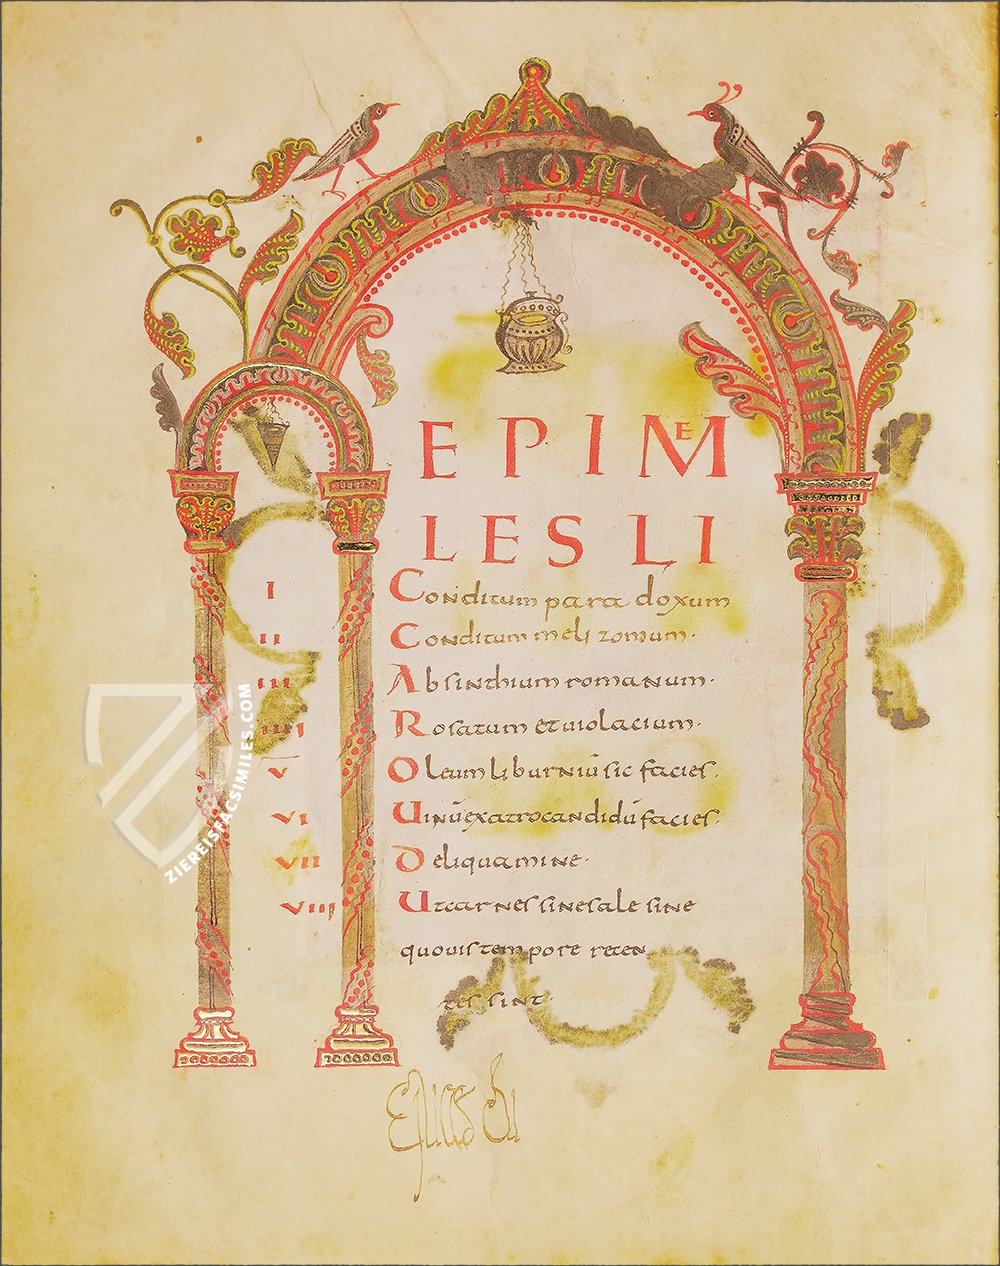 EPIMEM
LES LI
I Conditum paradoxum
II Conditum melizomum.
III Absinthium romanum.
IIII Rosatum et uiolacium.
V Oleum liburniū sic facies.
VI Uinū ex atro candidū facies.
VII De liquamine.
VIII Ut carnes sine sale sine
quouis tempore recen
tes sint.
ZIEREISFACSIMILES.COM